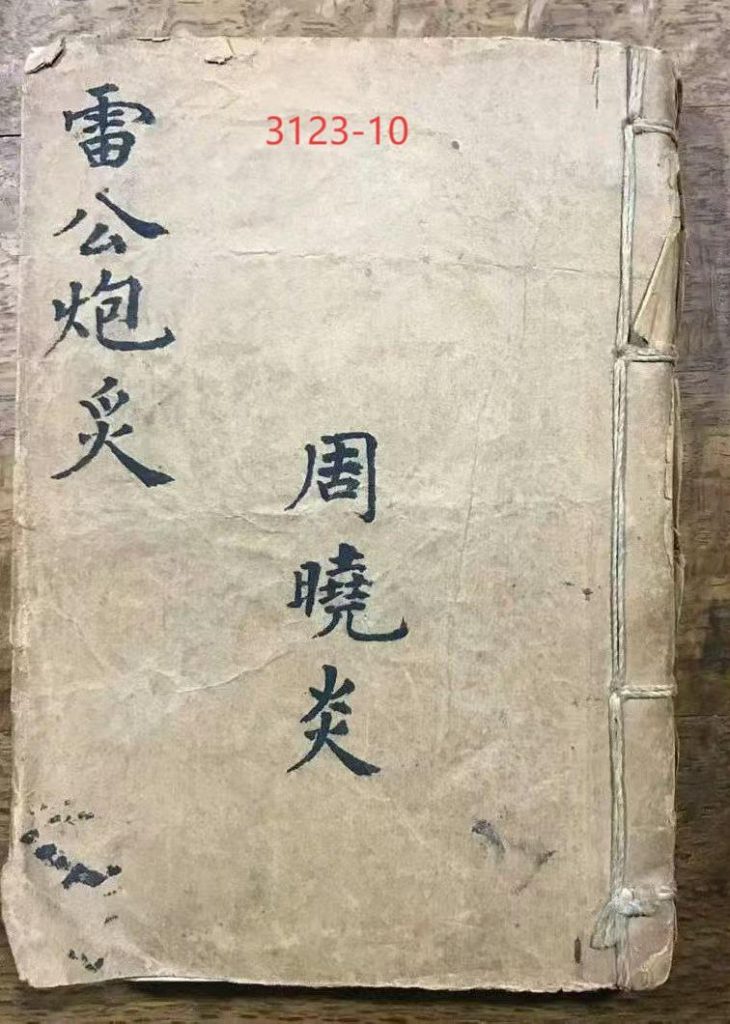 3123-10
雷公炮炙
周曉炎